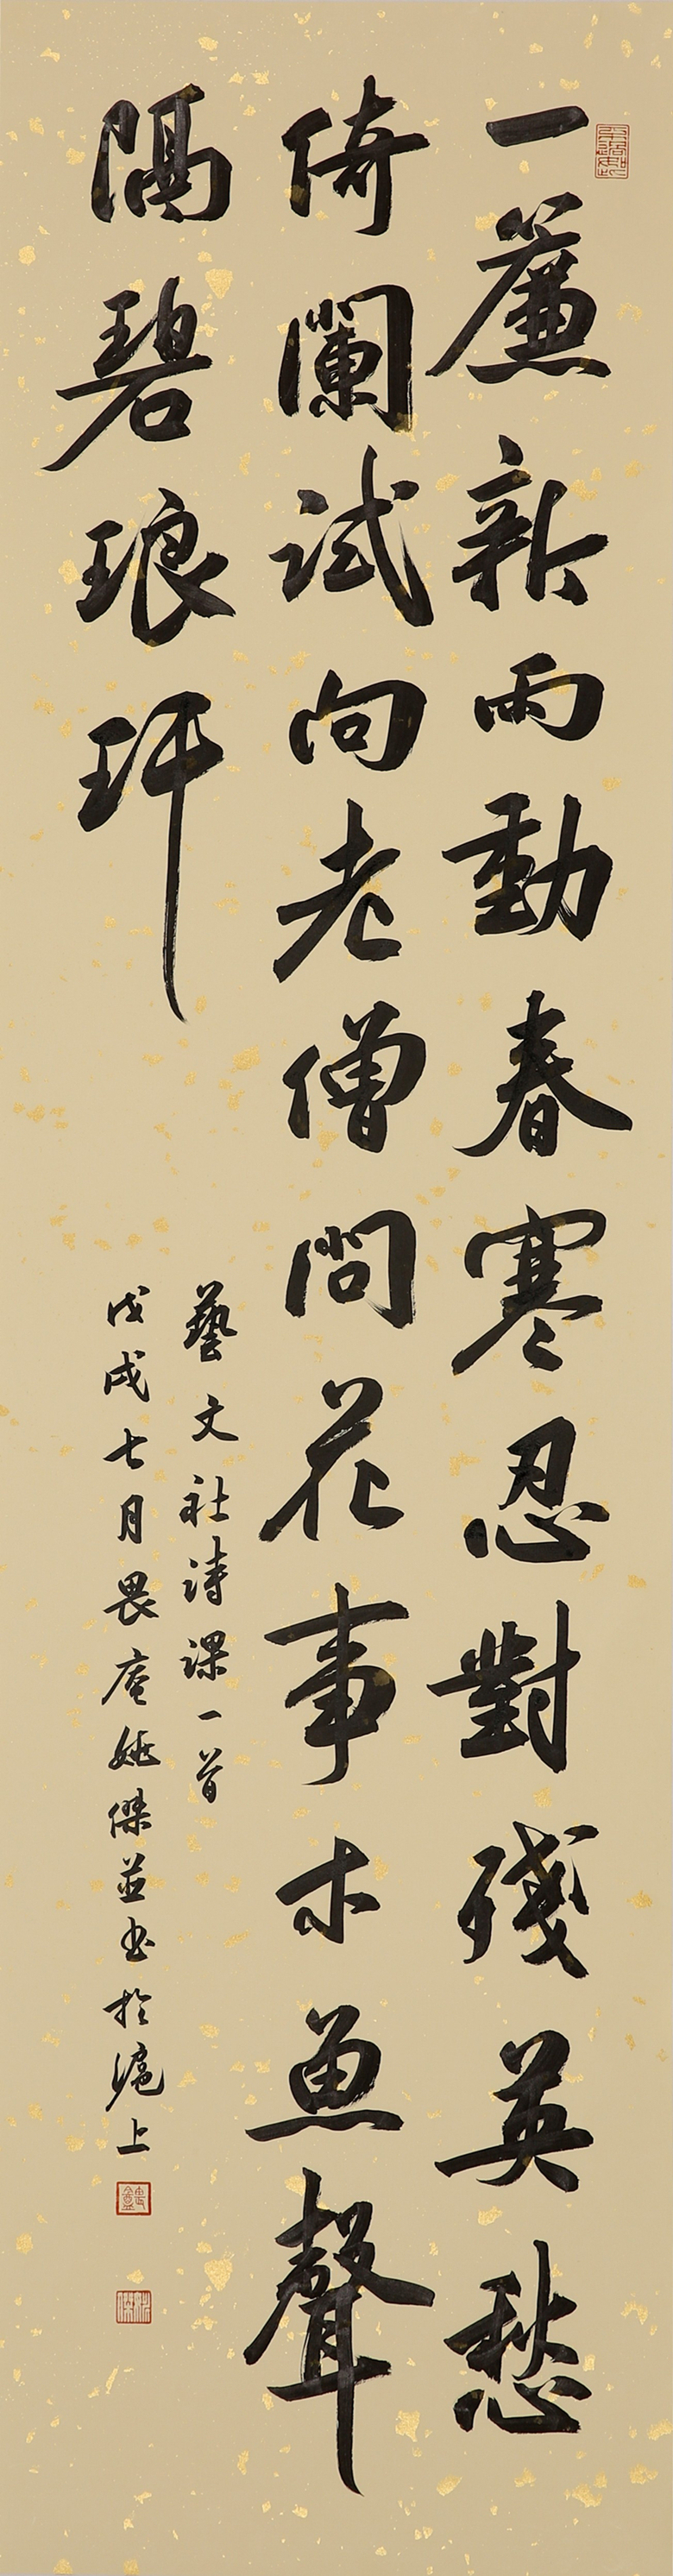 一簾新雨動春寒忍對殘英愁
倚闌試向老僧問花事木魚聲
隔碧琅玕
藝文社詩課一首
戊戌七月畏庵姚傑並書於滬上